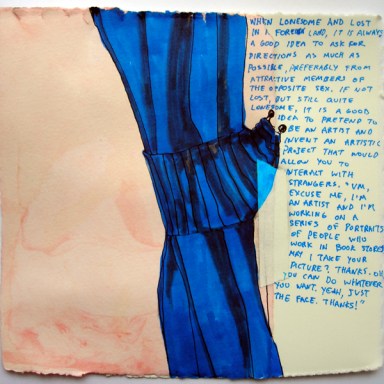 WHEN LONESOME AND LOST
IN A FOREIGN LAND, IT IS ALWAYS
A GOOD IDEA TO ASK FOR
DIRECTIONS AS MUCH AS
POSSIBLE, PREFERABLY FROM
ATTRACTIVE MEMBERS OF
THE OPPOSITE SEX. IF NOT
LOST, BUT STILL QUITE
LONESOME, IT IS A GOOD
IDEA TO PRETEND TO
BE AN ARTIST AND
INVENT AN ARTISTIC
PROJECT THAT WOULD
ALLOW YOU TO
INTERACT WITH
STRANGERS. "UM,
EXCUSE ME, I'M
AN ARTIST AND I'M
WORKING ON A
SERIES OF PORTRAITS
OF PEOPLE WHO
WORK IN BOOK STORES
MAY I TAKE YOUR
PICTURE?, THANKS. OH
YOU CAN DO WHATEVER
YOU WANT. YEAH, JUST
THE FACE. THANKS!"